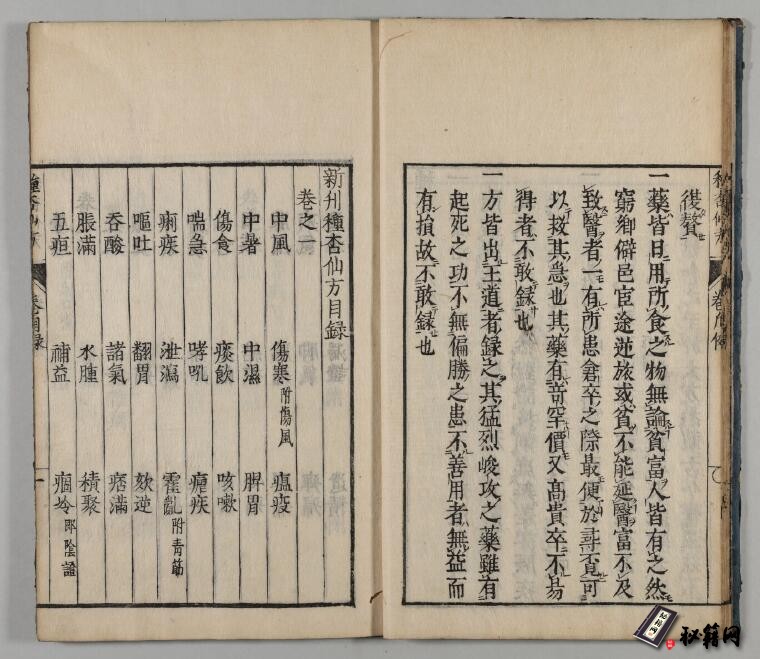 復贅
一藥皆日用所食之物無論貧富人皆有之然
窮鄉僻邑宦途逆旅或貧不能延醫富不及
致醫者一有所患倉卒之際最便於尋覓可
以救其急也其藥有奇罕價又高貴卒不易
得者不敢録也
一方皆出王道者録之其猛烈峻攻之藥雖有
起死之功不無偏勝之患不善用者無益而
有損故不敢録也
新刋種杏仙方目録
卷之一
中風 傷寒附傷風 瘟疫
中暑 中濕 脾胃
傷食 痰飲 咳嗽
喘急 哮吼 瘧疾
痢疾 泄瀉 霍亂附青筋
嘔吐 翻胃 欬逆
吞酸 諸氣 痞滿
脹滿 水腫 積聚
五疸 補益 痼冷即陰證
秘籍网